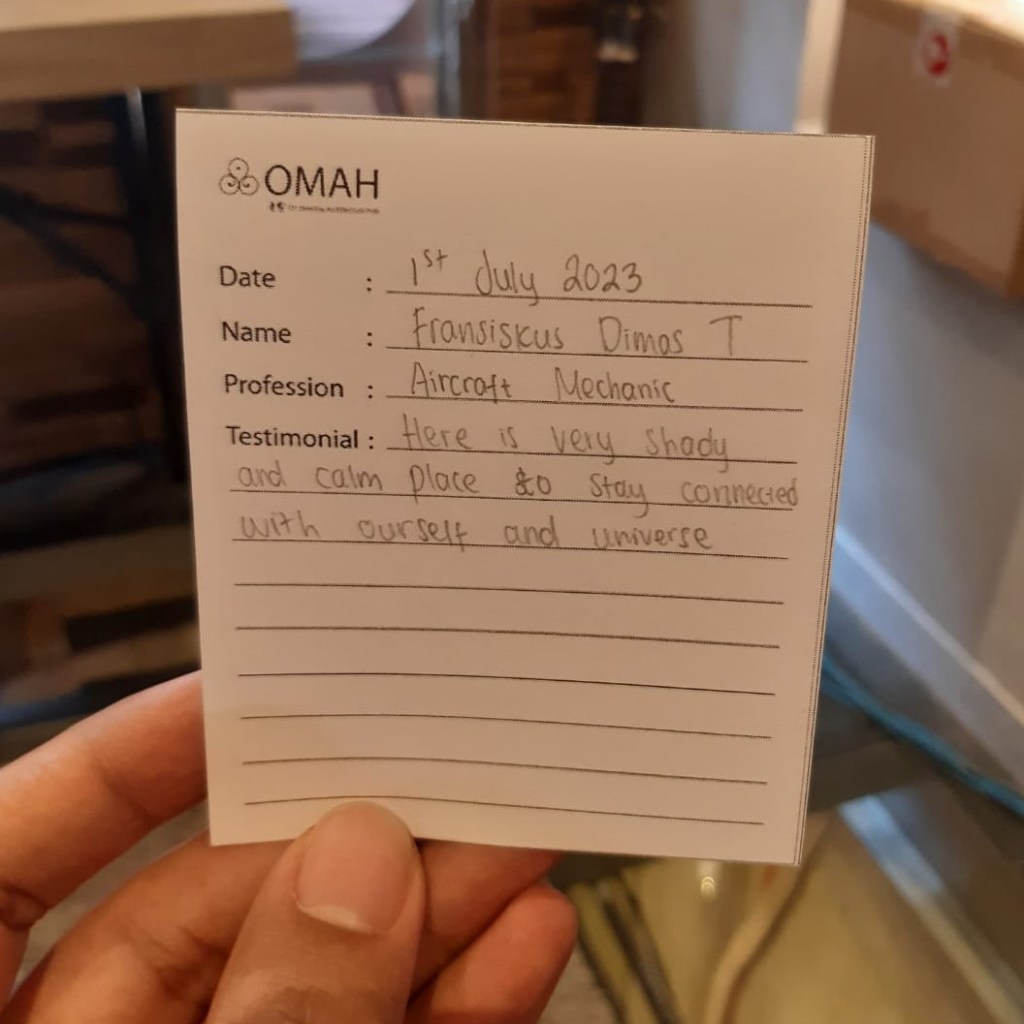 OMAH
Date : 1st July 2023
Name : Fransiskus Dimas T
Profession : Aircraft Mechanic
Testimonial : Here is very shady
and calm place to stay connected
with ourself and universe